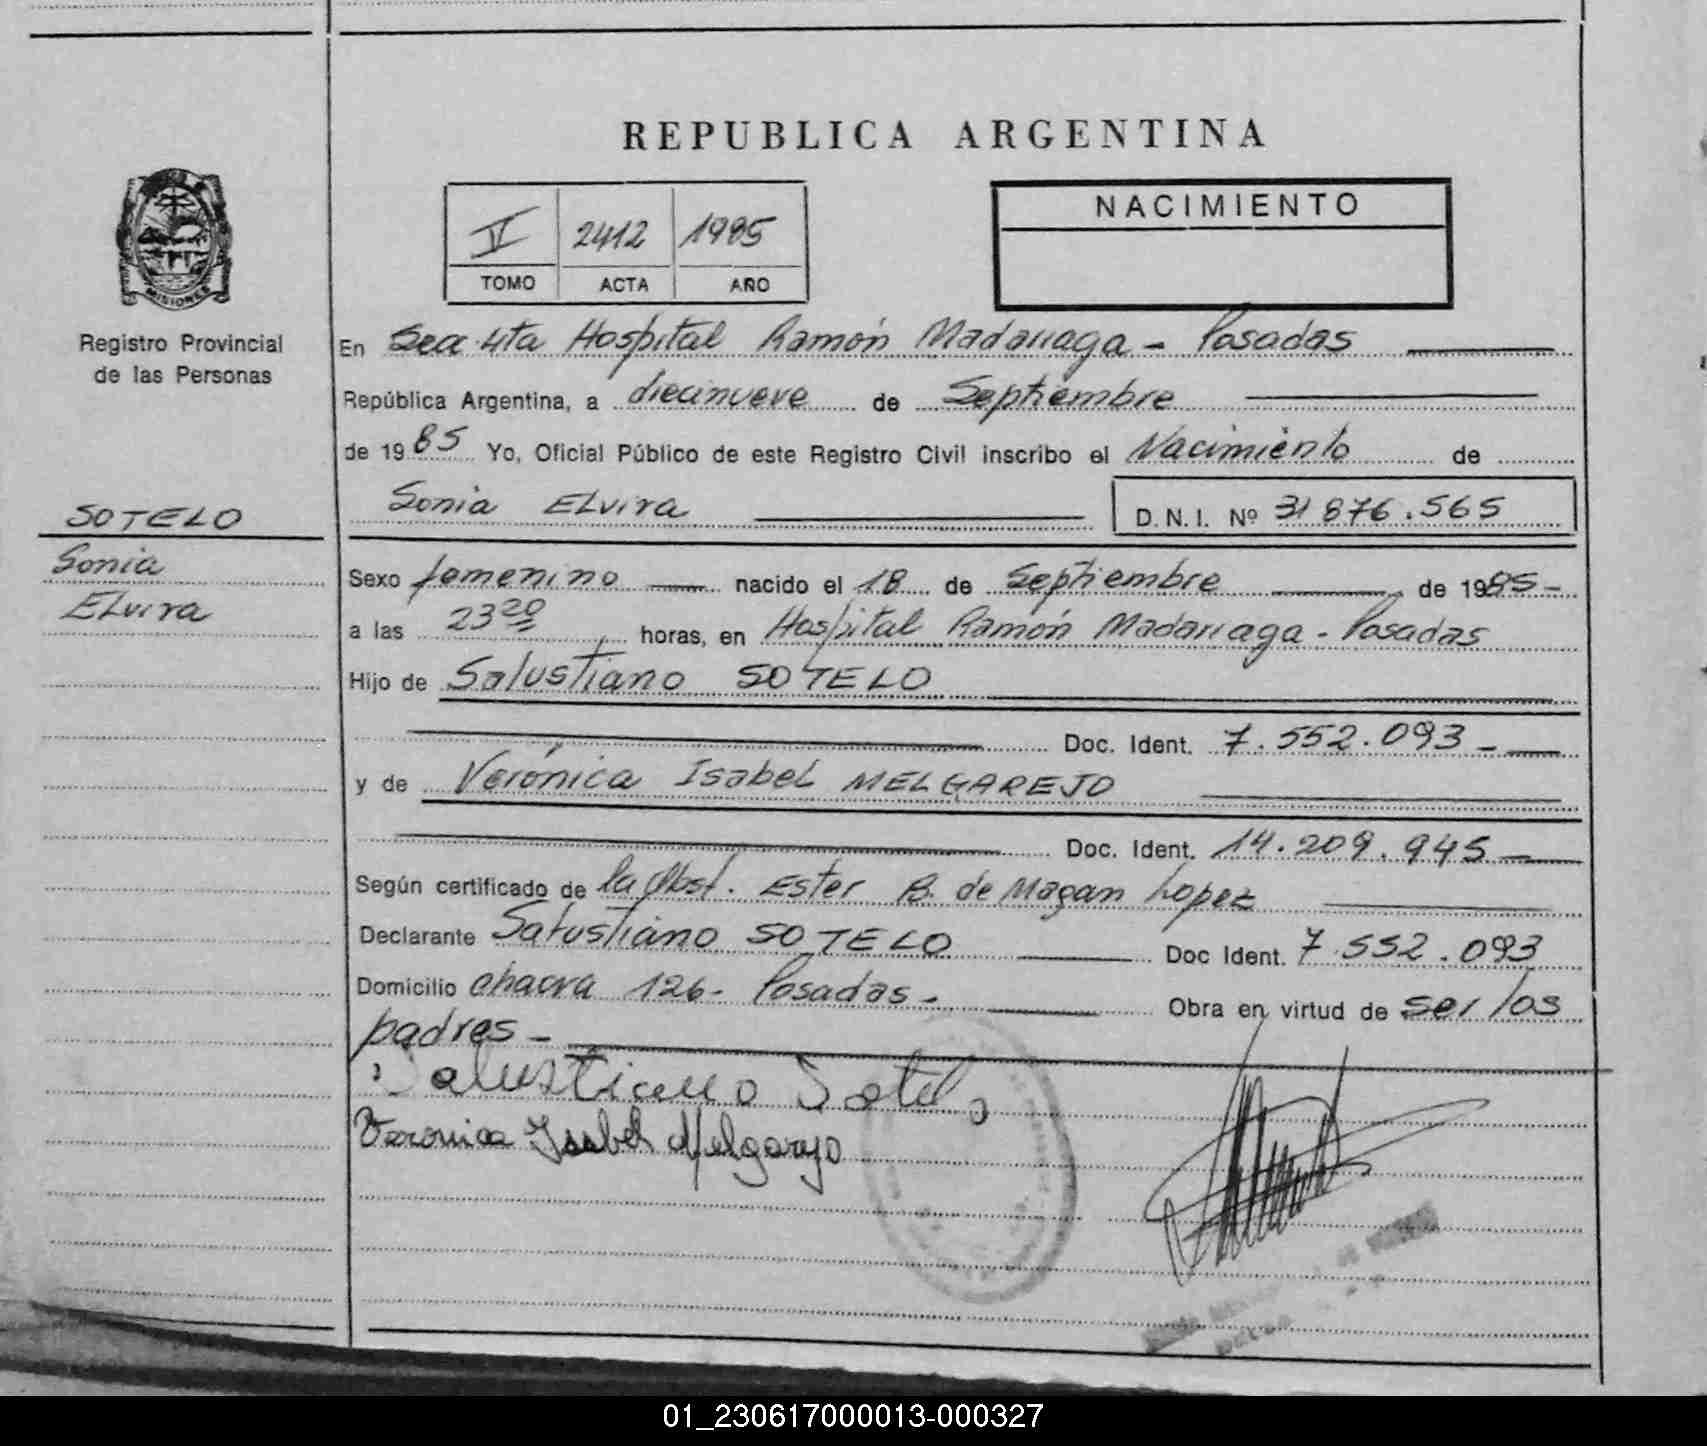 REPUBLICA ARGENTINA
V 2412 1985
TOMO ACTA AÑO
NACIMIENTO
MISIONES
Registro Provincial
de las Personas
En Secc 4ta Hospital Ramón Madariaga - Posadas
República Argentina, a diecinueve de Septiembre
de 1985 Yo, Oficial Público de este Registro Civil inscribo el Nacimiento de
Sonia Elvira D.N.I. Nº 31876.565
SOTELO
Sonia
Elvira
Sexo femenino nacido el 18 de Septiembre de 1985-
a las 23 20 horas, en Hospital Ramón Madariaga - Posadas
Hijo de Salustiano SOTELO
Doc. Ident. 7.552.093 -
y de Verónica Isabel MELGAREJO
Doc. Ident. 14.209.945
Según certificado de la Obst. Ester B. de Magan Lopez
Declarante Salustiano SOTELO Doc Ident. 7.552.093
Domicilio chacra 126- Posadas - Obra en virtud de ser los
padres -
Salustiano Sotelo
Veronica Isabel Melgarejo
01_230617000013-000327